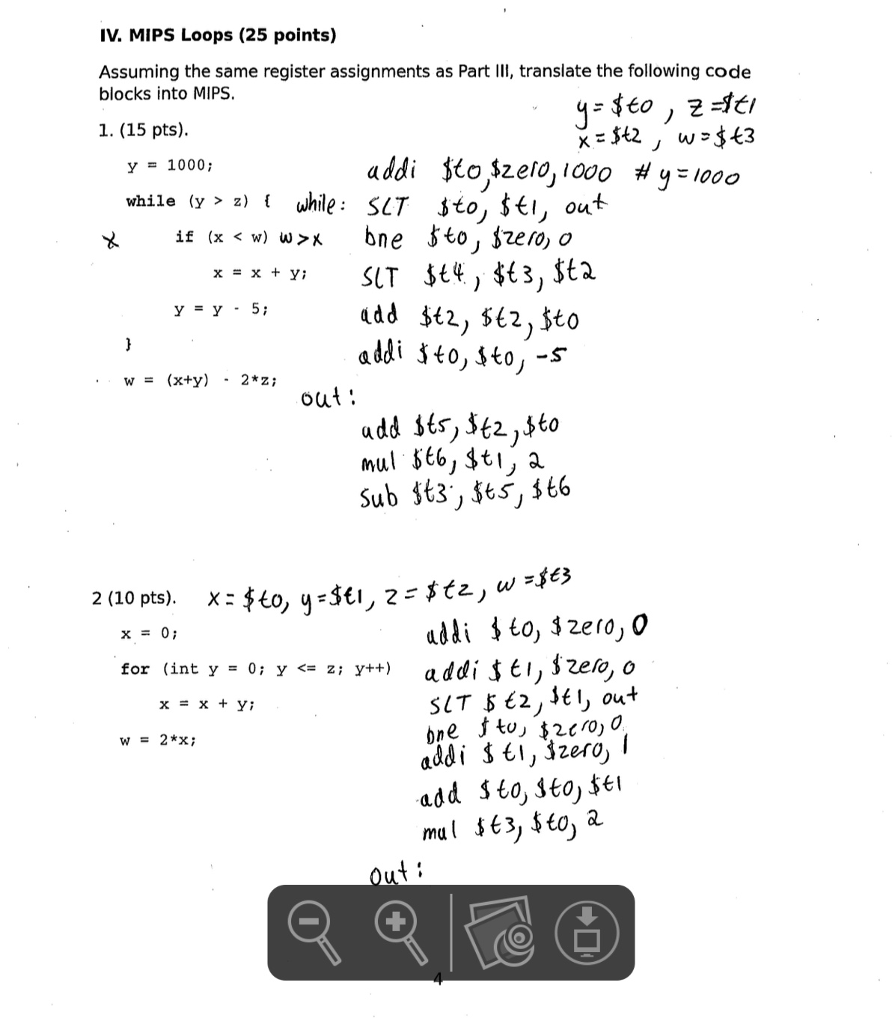 IV. MIPS Loops (25 points)
Assuming the same register assignments as Part III, translate the following code
blocks into MIPS.
y = $t0 , z = $t1
x = $t2 , w = $t3
1. (15 pts).
y = 1000; addi $t0, $zero, 1000 # y = 1000
while (y > z) { while: SLT $t0, $t1, out
x if (x < w) w > x bne $t0, $zero, 0
x = x + y; SLT $t4, $t3, $t2
y = y - 5; add $t2, $t2, $t0
} addi $t0, $t0, -5
w = (x+y) - 2*z;
out:
add $t5, $t2, $t0
mul $t6, $t1, 2
sub $t3, $t5, $t6
2 (10 pts). x = $t0, y = $t1, z = $t2, w = $t3
x = 0; addi $t0, $zero, 0
for (int y = 0; y <= z; y++) addi $t1, $zero, 0
x = x + y; SLT $t2, $t1, out
bne $t0, $zero, 0
w = 2*x; addi $t1, $zero, 1
add $t0, $t0, $t1
mul $t3, $t0, 2
out:
4